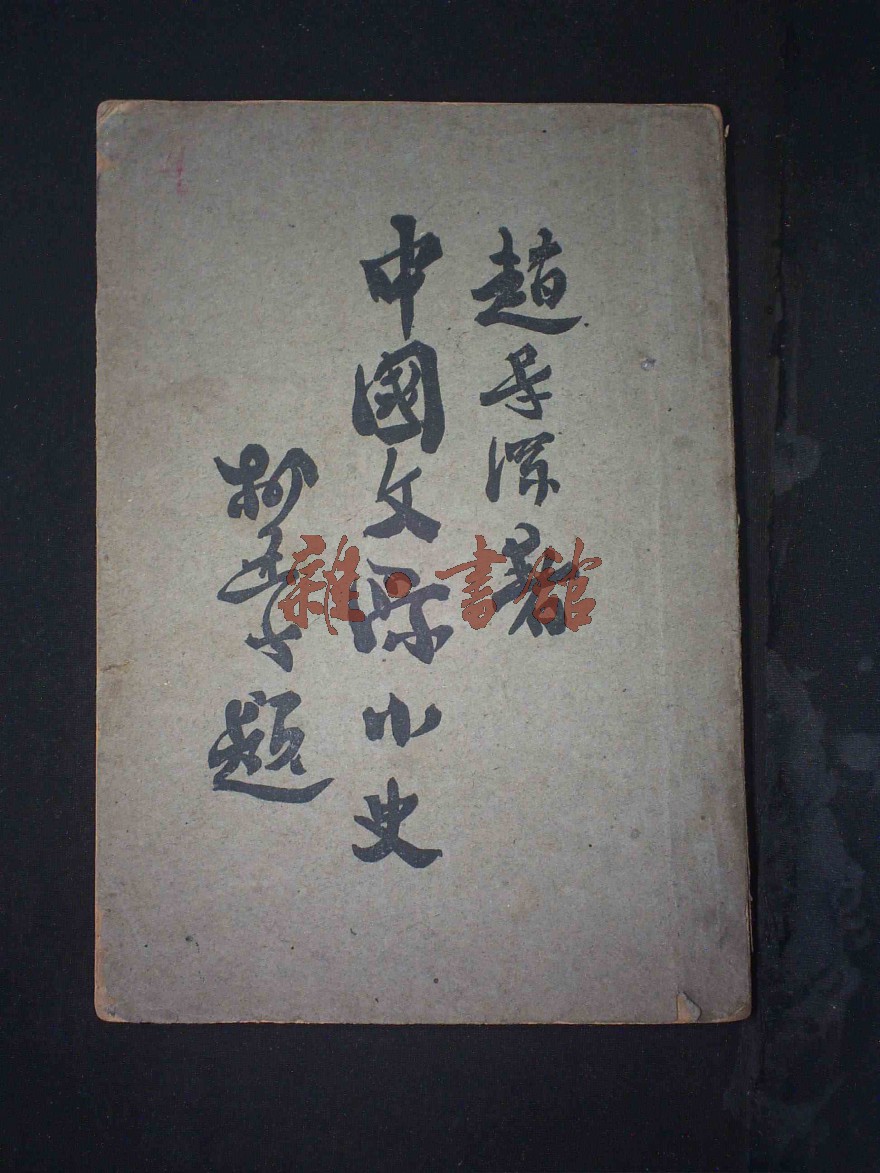 趙景深著
中國文學小史
柳亞子題
雜·書館